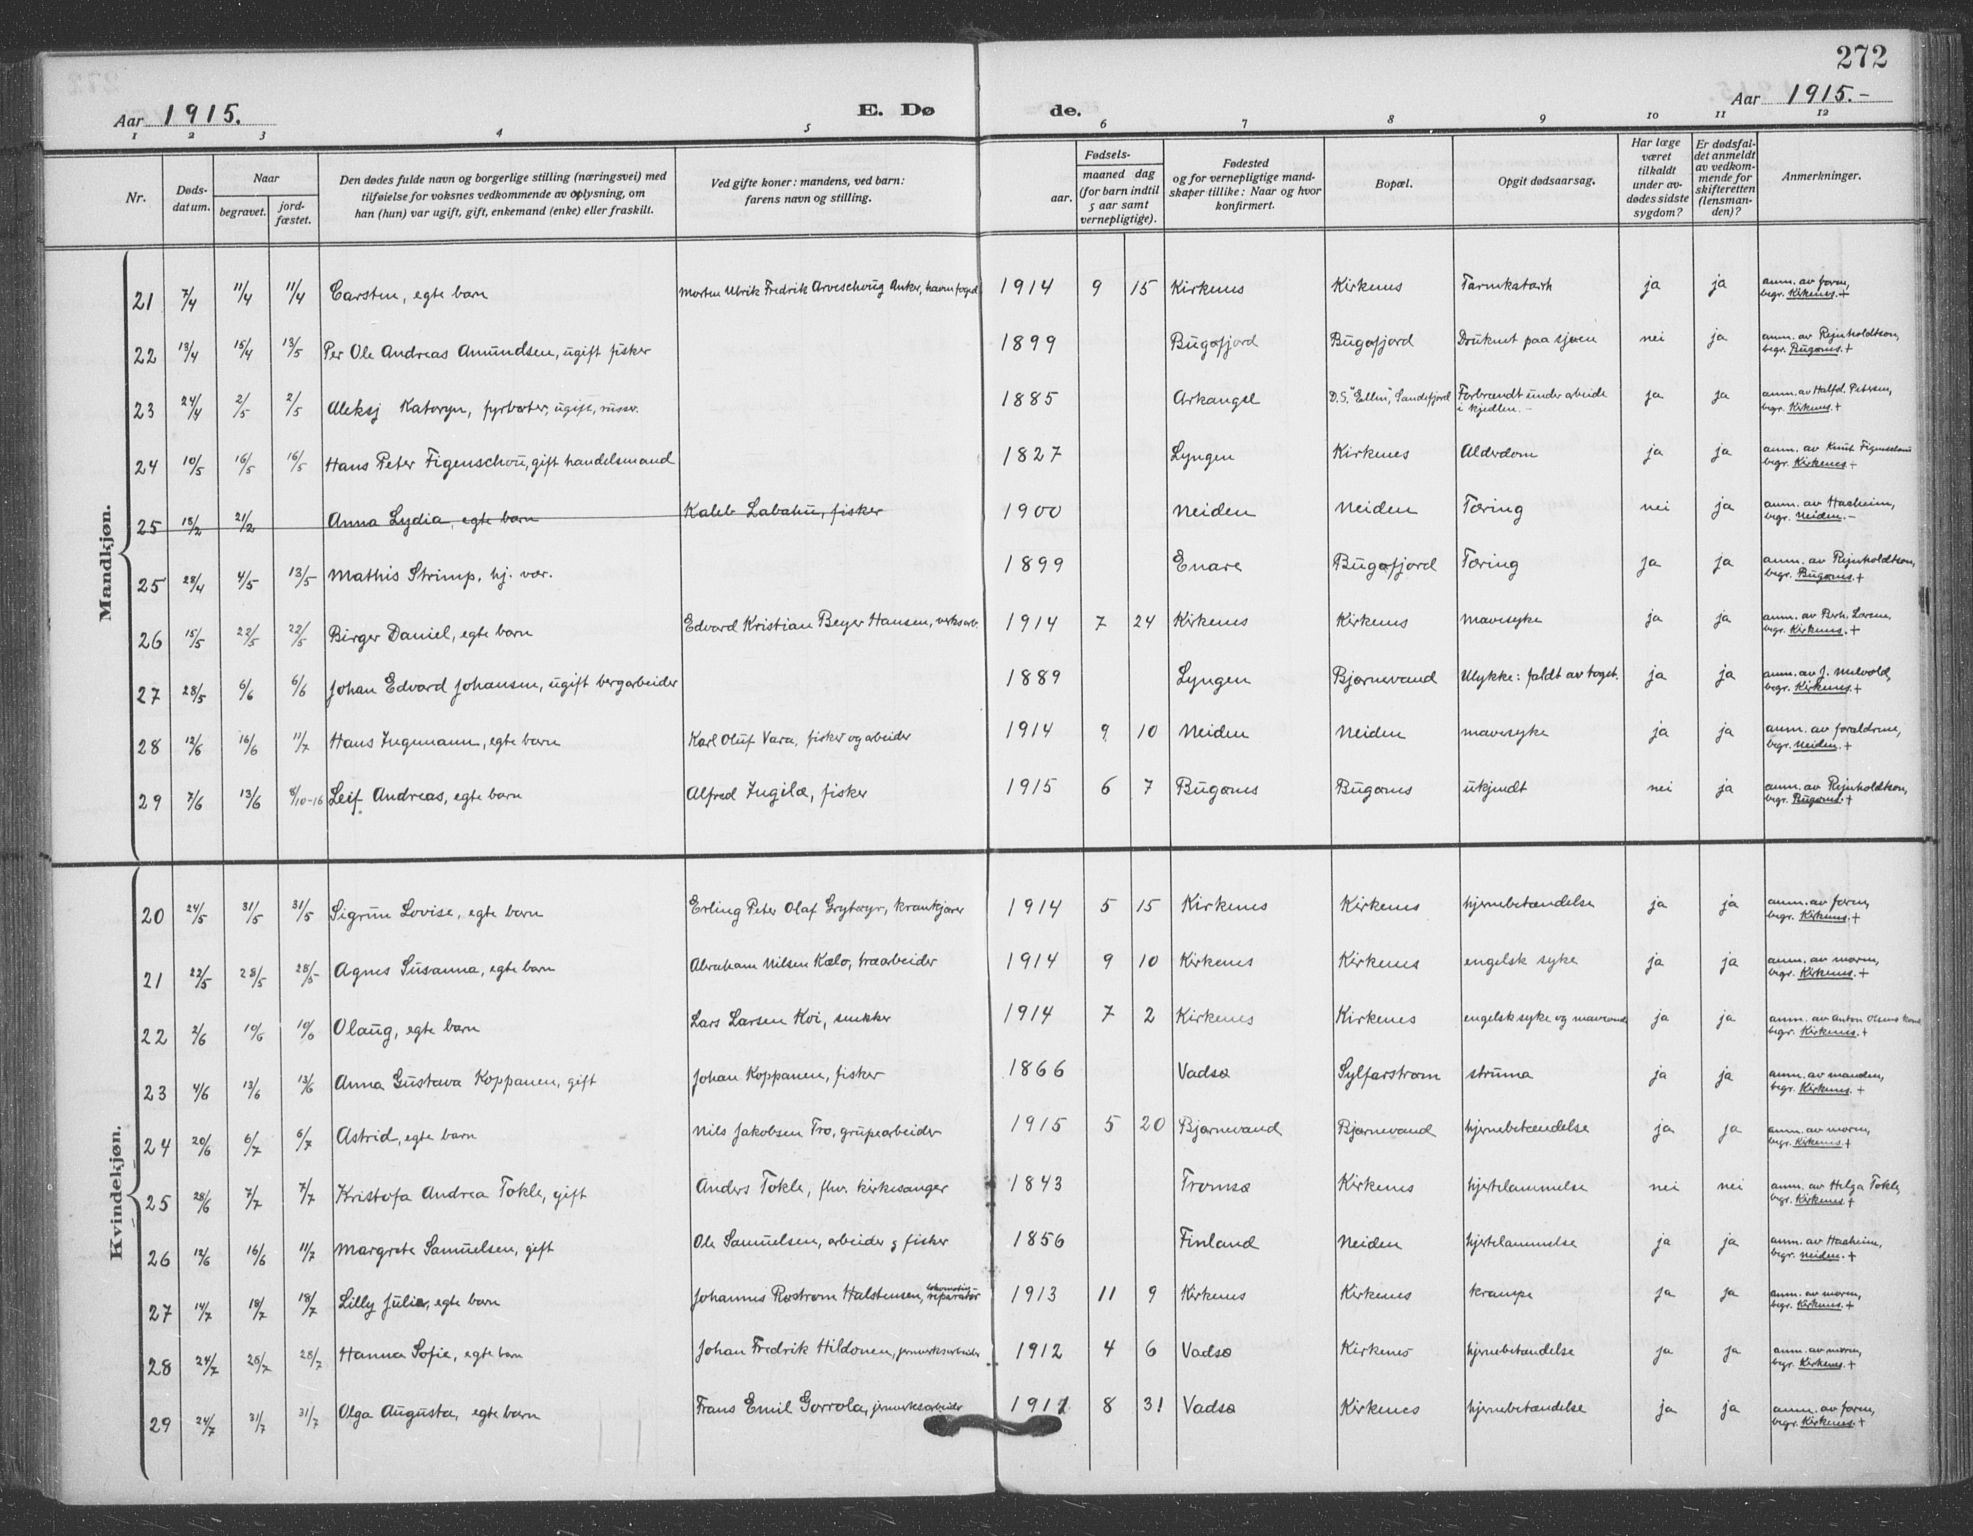 272
Aar 1915. E. Dø de. Aar 1915.-
1 2 3 4 5 6 7 8 9 10 11 12
Nr.
Døds-
datum.
Naar
begravet.
jord-
fæstet.
Den dødes fulde navn og borgerlige stilling (næringsvei) med
tilføielse for voksnes vedkommende av oplysning, om
han (hun) var ugift, gift, enkemand (enke) eller fraskilt.
Ved gifte koner: mandens, ved barn:
farens navn og stilling.
Fødsels-
aar.
maaned dag
(for barn indtil
5 aar samt
vernepligtige).
Fødested
og for vernepligtige mand-
skaper tillike: Naar og hvor
konfirmert.
Bopæl.
Opgit dødsaarsag.
Har læge
været
tilkaldt
under av-
dødes sidste
sygdom?
Er dødsfal-
det anmeldt
av vedkom-
mende for
skifteretten
(lensman-
den)?
Anmerkninger.
Mandkjøn.
21 7/4 11/4 11/4 Carsten, egte barn Morten Ulrik Fredrik Arveschoug Anker, havnefoged 1914 9 15 Kirkenes Kirkenes Tarmkatarh ja ja anm. av faren,
begr. Kirkenes. +
22 13/4 15/4 13/5 Per Ole Andreas Amundsen, ugift fisker 1899 Bugøfjord Bugøfjord Druknet paa sjøen nei ja anm. av Rejnholdtsen,
begr. Bugønes +
23 24/4 2/5 2/5 Aleksj Katoryn, fyrbøter, ugift, russer. 1885 Arkangel D.S. "Ellin", Sandefjord Forbrændt under arbeide
i kjedlen. - ja ja anm. av Halfd. Petersen,
begr. Kirkenes +
24 10/5 16/5 16/5 Hans Peter Figenschou, gift handelsmand 1827 Lyngen Kirkenes Alderdom ja ja anm. av Knut Figenschou
begr. Kirkenes +
25 18/2 21/2 Anna Lydia, egte barn Kaleb Labahu, fisker 1900 Neiden Neiden Tæring nei ja anm. av Haaheim,
begr. Neiden. -
25 28/4 4/5 13/5 Mathis Strimp, hj. vær. 1899 Enare Bugøfjord Tæring ja ja anm. av Rejnholdtsen,
begr. Bugønes +
26 15/5 22/5 22/5 Birger Daniel, egte barn Edvard Kristian Beyer Hansen, verksarb. 1914 7 24 Kirkenes Kirkenes mavesyke ja ja anm. av Berh. Lorens,
begr. Kirkenes. +
27 28/5 6/6 6/6 Johan Edvard Johansen, ugift bergarbeider 1889 Lyngen Bjørnevand Ulykke: faldt av toget. ja ja anm. av J. Melvold,
begr. Kirkenes +
28 12/6 16/6 11/7 Hans Ingemann, egte barn Karl Oluf Vara, fisker og arbeider 1914 9 10 Neiden Neiden mavesyke ja ja anm. av forældrene,
begr. Neiden. +
29 7/6 13/6 8/10-16 Leif Andreas, egte barn Alfred Ingilæ, fisker 1915 6 7 Bugønes Bugønes ukjendt nei ja anm. av Rejnholdtsen,
begr. Bugønes. +
Kvindekjøn.
20 24/5 31/5 31/5 Sigrun Lovise, egte barn Erling Peter Olaf Grytøyr, krankjører 1914 5 15 Kirkenes Kirkenes hjernebetændelse ja ja anm. av faren,
begr. Kirkenes. +
21 22/5 28/5 28/5 Agnes Susanna, egte barn Abraham Nilsen Kælo, træarbeider 1914 9 10 Kirkenes Kirkenes engelsk syke ja ja anm. av moren,
begr. Kirkenes. +
22 2/6 10/6 10/6 Olaug, egte barn Lars Larsen Koi, snekker 1914 7 2 Kirkenes Kirkenes engelsk syke og maveonde ja ja anm. av Anton Olsens kone
begr. Kirkenes. +
23 4/6 13/6 13/6 Anna Gustava Koppanen, gift Johan Koppanen, fisker 1866 Vadsø Sylfarstrøm struma ja ja anm. av manden,
begr. Kirkenes. +
24 20/6 6/7 6/7 Astrid, egte barn Nils Jakobsen Tro, grupearbeider 1915 5 20 Bjørnevand Bjørnevand hjernebetændelse ja ja anm. av moren,
begr. Kirkenes +
25 28/6 7/7 7/7 Kristofa Andrea Tokle, gift Anders Tokle, fhv. kirkesanger 1843 Tromsø Kirkenes hjertelammelse nei nei anm. av Helga Tokle,
begr. Kirkenes +
26 12/6 16/6 11/7 Margrete Samuelsen, gift Ole Samuelsen, arbeider og fisker 1856 Finland Neiden hjertelammelse ja ja anm. av Haaheim,
begr. Neiden. +
27 14/7 18/7 18/7 Lilly Julia, egte barn Johannes Rostrøm Halstensen, lokomotiv-
reparatør 1913 11 9 Kirkenes Kirkenes krampe ja ja anm. av moren,
begr. Kirkenes. +
28 24/7 28/7 28/7 Hanna Sofie, egte barn Johan Fredrik Hildonen, jernverksarbeider 1912 4 6 Vadsø Kirkenes hjernebetændelse ja ja anm. av moren,
begr. Kirkenes +
29 24/7 31/7 31/7 Olga Augusta, egte barn Frans Emil Gorrola, jernverksarbeider 1911 8 31 Vadsø Kirkenes hjernebetændelse ja ja anm. av faren,
begr. Kirkenes. +